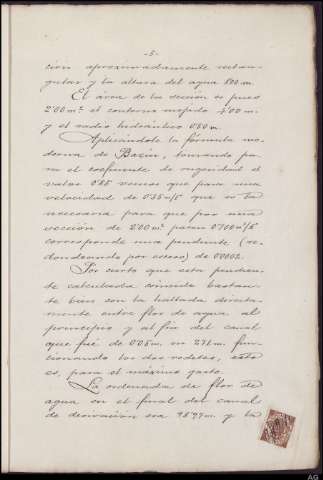 -5-
ción aproximadamente rectan-
gular y la altura del agua 1'00 m.
El área de la sección es pues
2'00 m² el contorno mojado 4'00 m.
y el radio hidráulico 0'50 m.
Aplicándole la fórmula mo-
derna de Bazin, tomando pa-
ra el coeficiente de rugosidad el
valor 0'85 vemos que para una
velocidad de 0'35 m/s que es la
necesaria para que por una
sección de 2'00 m² pasen 0'700 m³/s
corresponde una pendiente (re-
dondeando por exceso) de 0'0002.
Por cierto que esta pendien-
te calculada coincide bastan-
te bien con la hallada directa-
mente entre flor de agua al
principio y al fin del canal
que fué de 0'05 m. en 271 m. fun-
cionando los dos rodetes, esto
es, para el máximo gasto.
La ordenada de flor de
agua en el final del canal
de derivación era 98'97 m. y la
AG